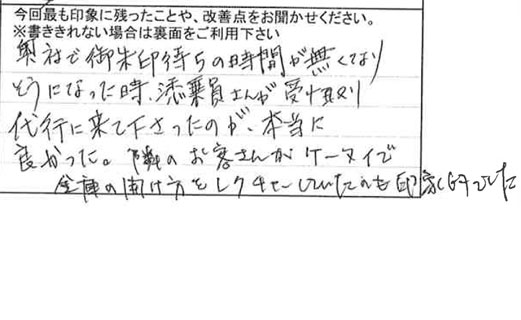 今回最も印象に残ったことや、改善点をお聞かせください。
※書ききれない場合は裏面をご利用下さい
奥社で御朱印待ちの時間が無くなり
そうになった時、添乗員さんが受け取り
代行に来て下さったのが、本当に
良かった。隣のお客さんがケータイで
金庫の開け方をレクチャーしていたのも印象的でした